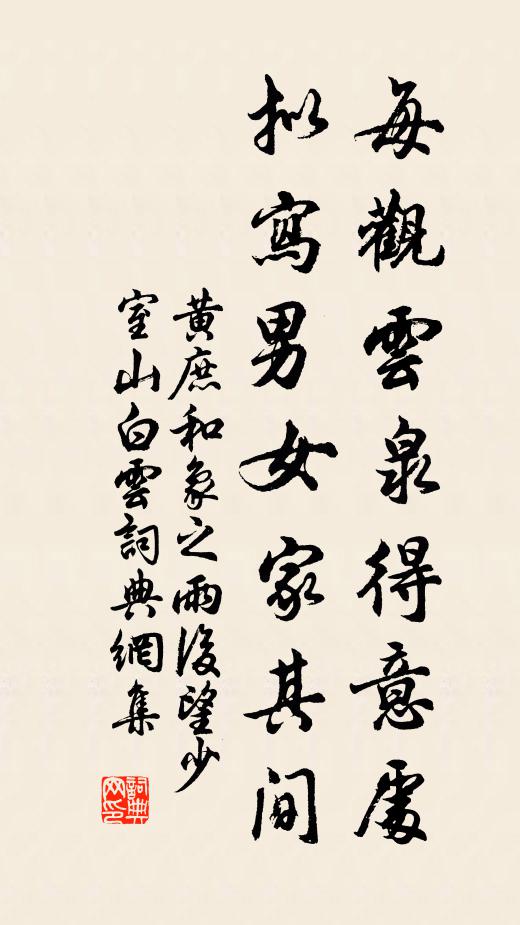 每觀雲泉得意處
拟寫男女家其間
黃庶和象之雨後望少
室山白雲詞典網集
詞典
网印